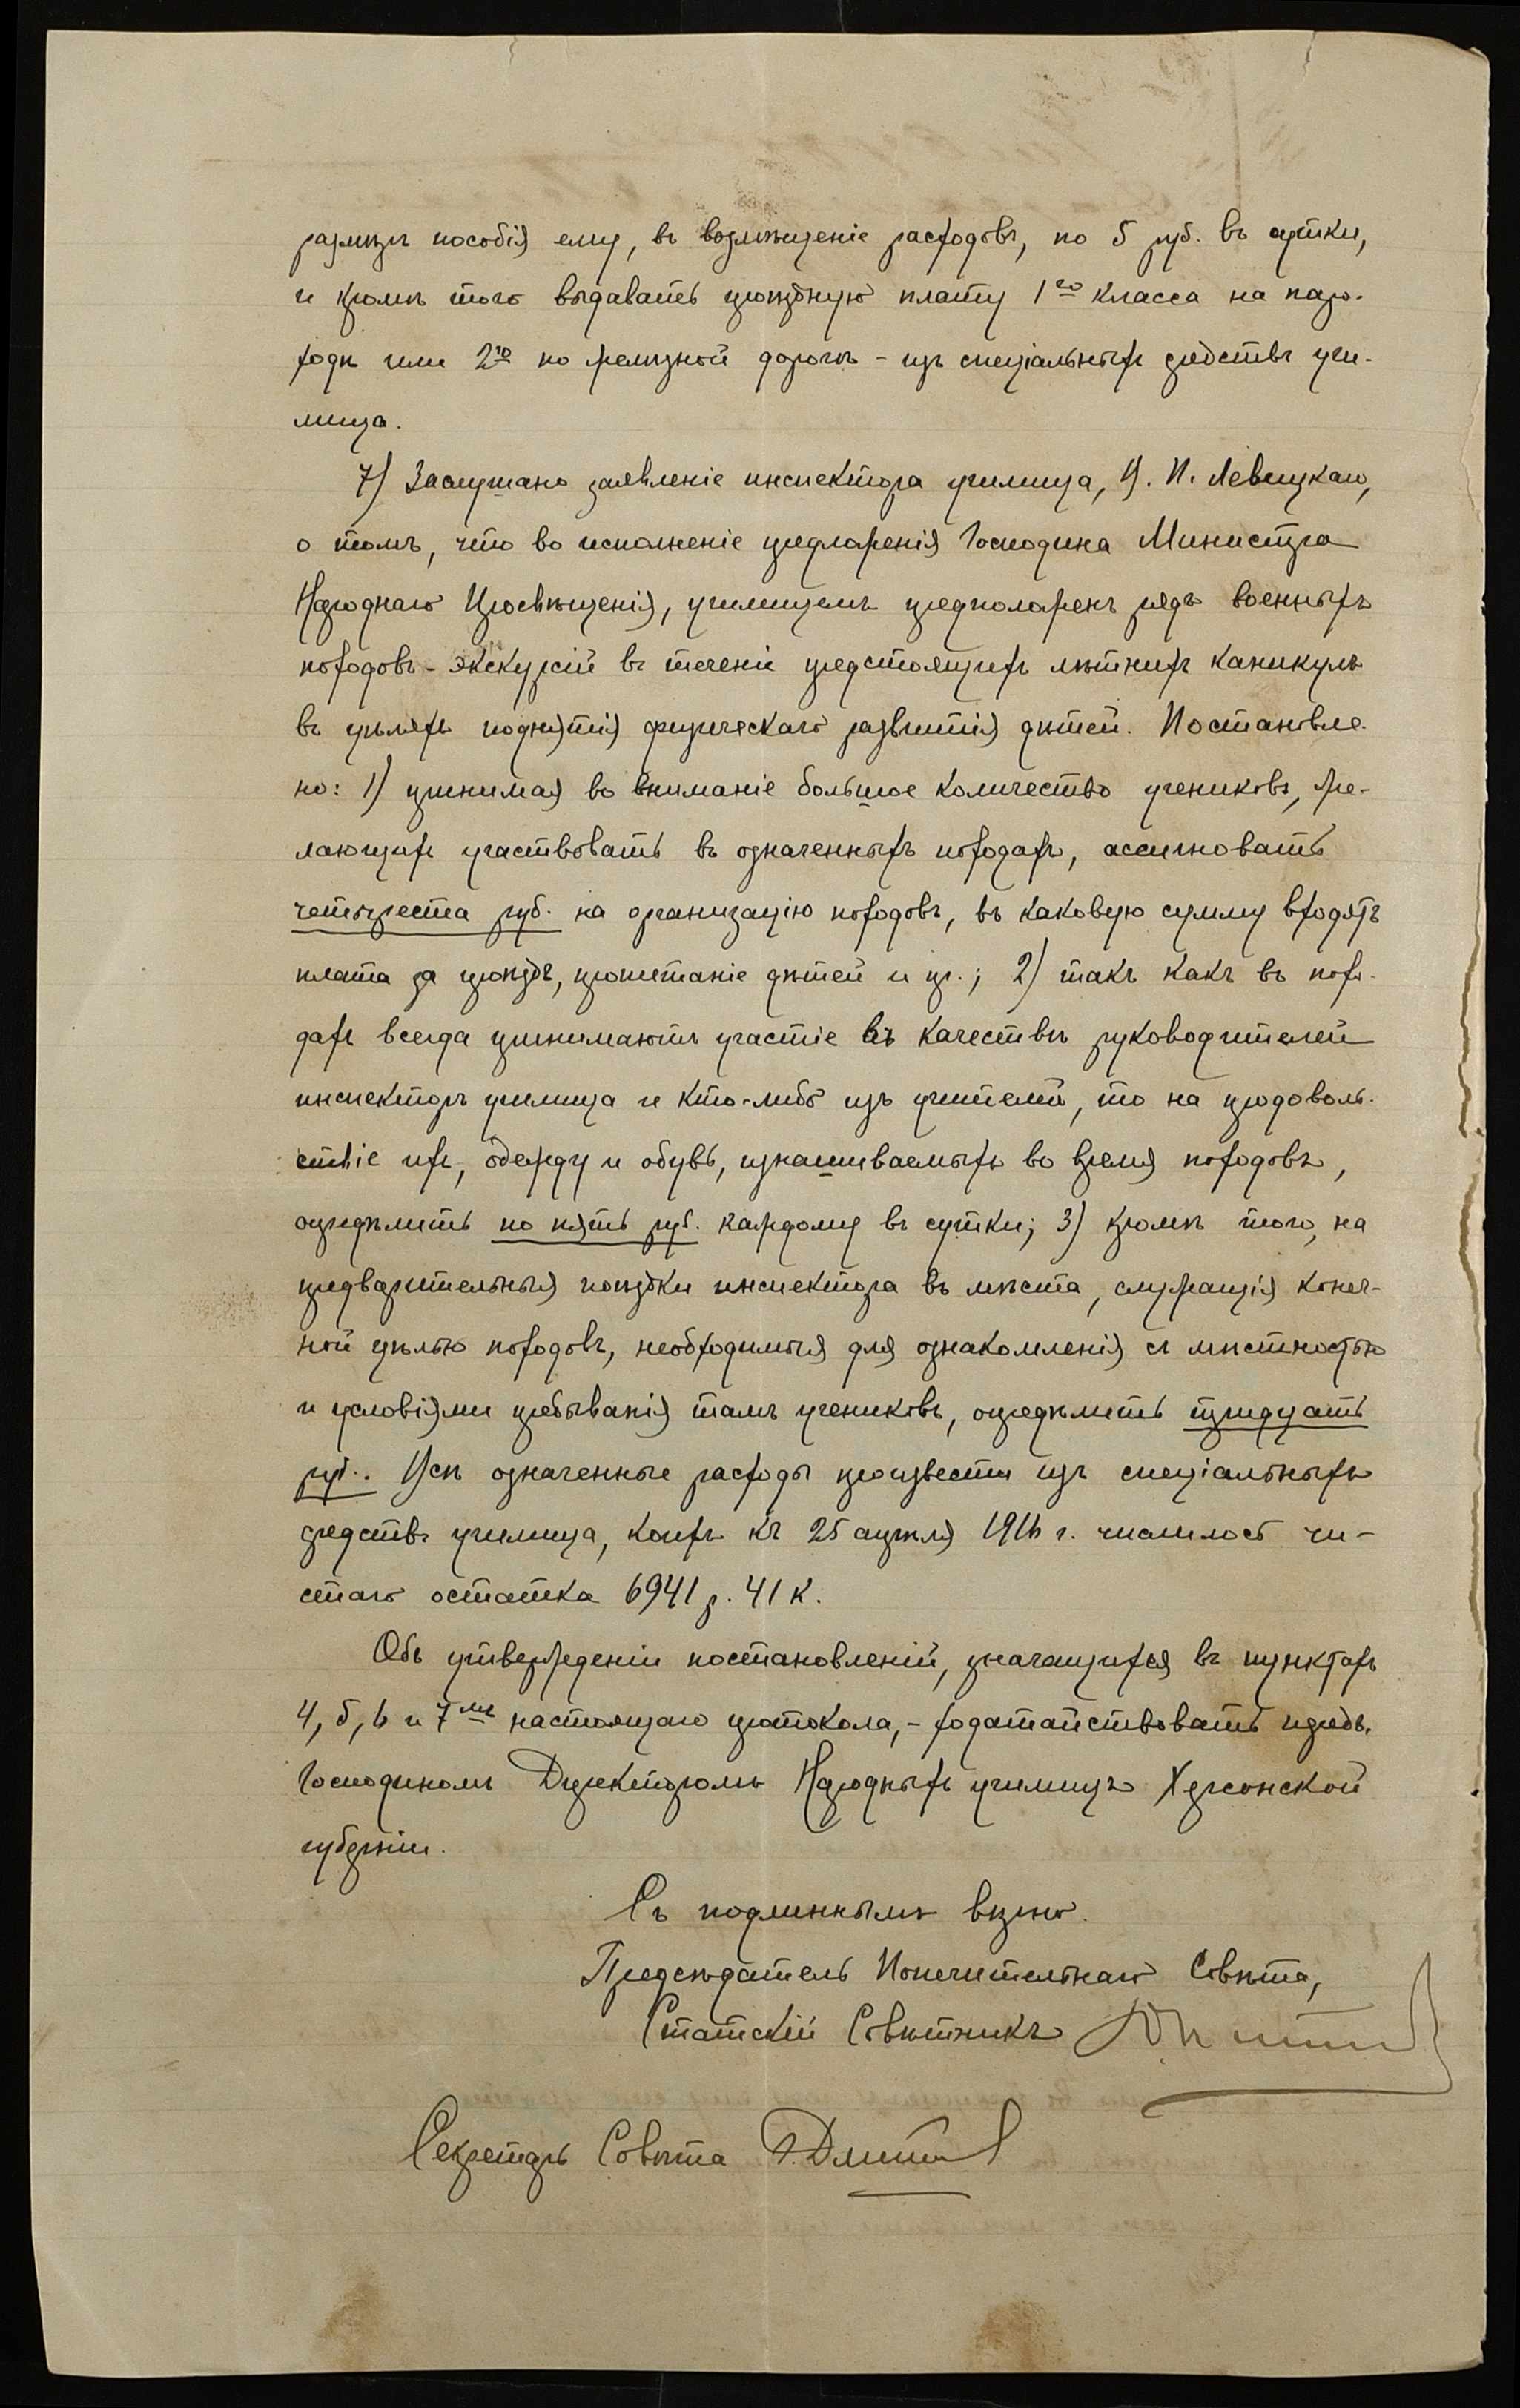 размѣръ пособія ему, въ возмѣщеніе расходовъ, по 5 руб. въ сутки,
и кромѣ того выдавать проѣздную плату 1го класса на паро-
ходѣ или 2го по желѣзной дорогѣ - изъ спеціальныхъ средствъ учи-
лища.
7) Заслушано заявленіе инспектора училища, И. Левицкаго,
о томъ, что во исполненіе предложенія Господина Министра
Народнаго Просвѣщенія, училищемъ предположенъ рядъ военныхъ
походовъ-экскурсій въ теченіи предстоящихъ лѣтнихъ каникулъ
въ цѣляхъ поднятія физическаго развитія дѣтей. Постановле-
но: 1) принимая во вниманіе большое количество учениковъ, же-
лающихъ участвовать въ означенныхъ походахъ, ассигновать
четыреста руб. на организацію походовъ, въ каковую сумму входятъ
плата за проѣздъ, пропитаніе дѣтей и пр.; 2) такъ какъ въ похо-
дахъ всегда принимаютъ участіе въ качествѣ руководителей
инспекторъ училища и кто-либо изъ учителей, то на продоволь-
ствіе ихъ, одежду и обувь, изнашиваемыхъ во время походовъ,
опредѣлить по пять руб. каждому въ сутки; 3) кромѣ того, на
предварительныя поѣздки инспектора въ мѣста, служащія конеч-
ной цѣлью походовъ, необходимыя для ознакомленія съ мѣстностью
и условіями пребыванія тамъ учениковъ, опредѣлить тридцать
руб.. Всѣ означенные расходы произвести изъ спеціальныхъ
средствъ училища, коихъ къ 25 апрѣля 1916 г. числилось чи-
стаго остатка 6941 р. 41 к.
Объ утвержденіи постановленій, значащихся въ пунктахъ
4, 5, 6 и 7мъ настоящаго протокола, - ходатайствовать предъ
Господиномъ Директоромъ Народныхъ училищъ Херсонской
губерніи.
Съ подлиннымъ вѣрно.
Предсѣдатель Попечительнаго Совѣта,
Статскій Совѣтникъ
Секретарь Совѣта